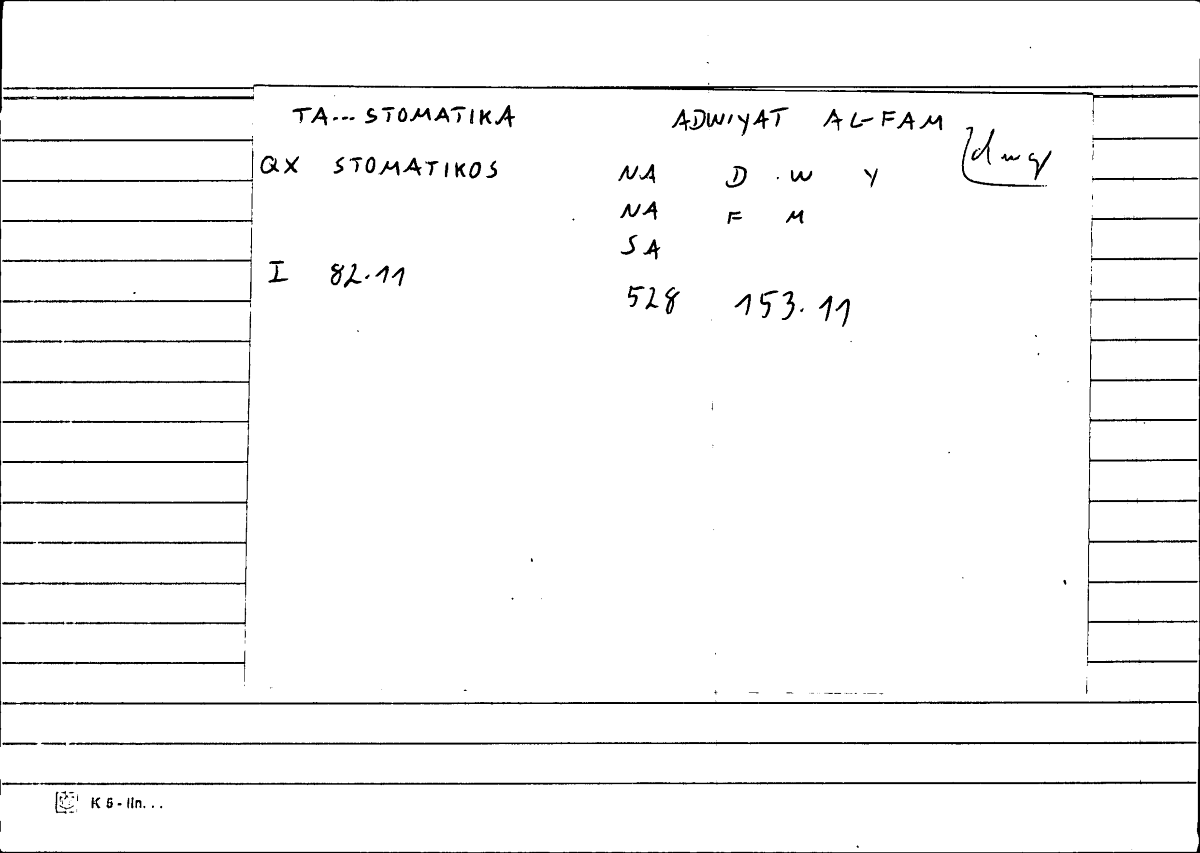 TA... STOMATIKA ADWIYAT AL-FAM
QX STOMATIKOS NA D . W Y
NA F M
SA
I 82.11
528 153.11
K 5 - lin. . .